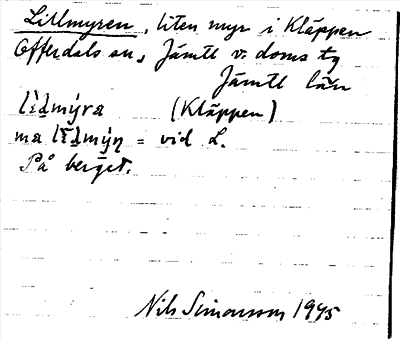 Lillmyren, liten myr i Kläppen
Offerdals sn, Jämtl v. doms tg
Jämtl län
(Kläppen)
= vid L.
På berget.
Nils Simonsson 1945